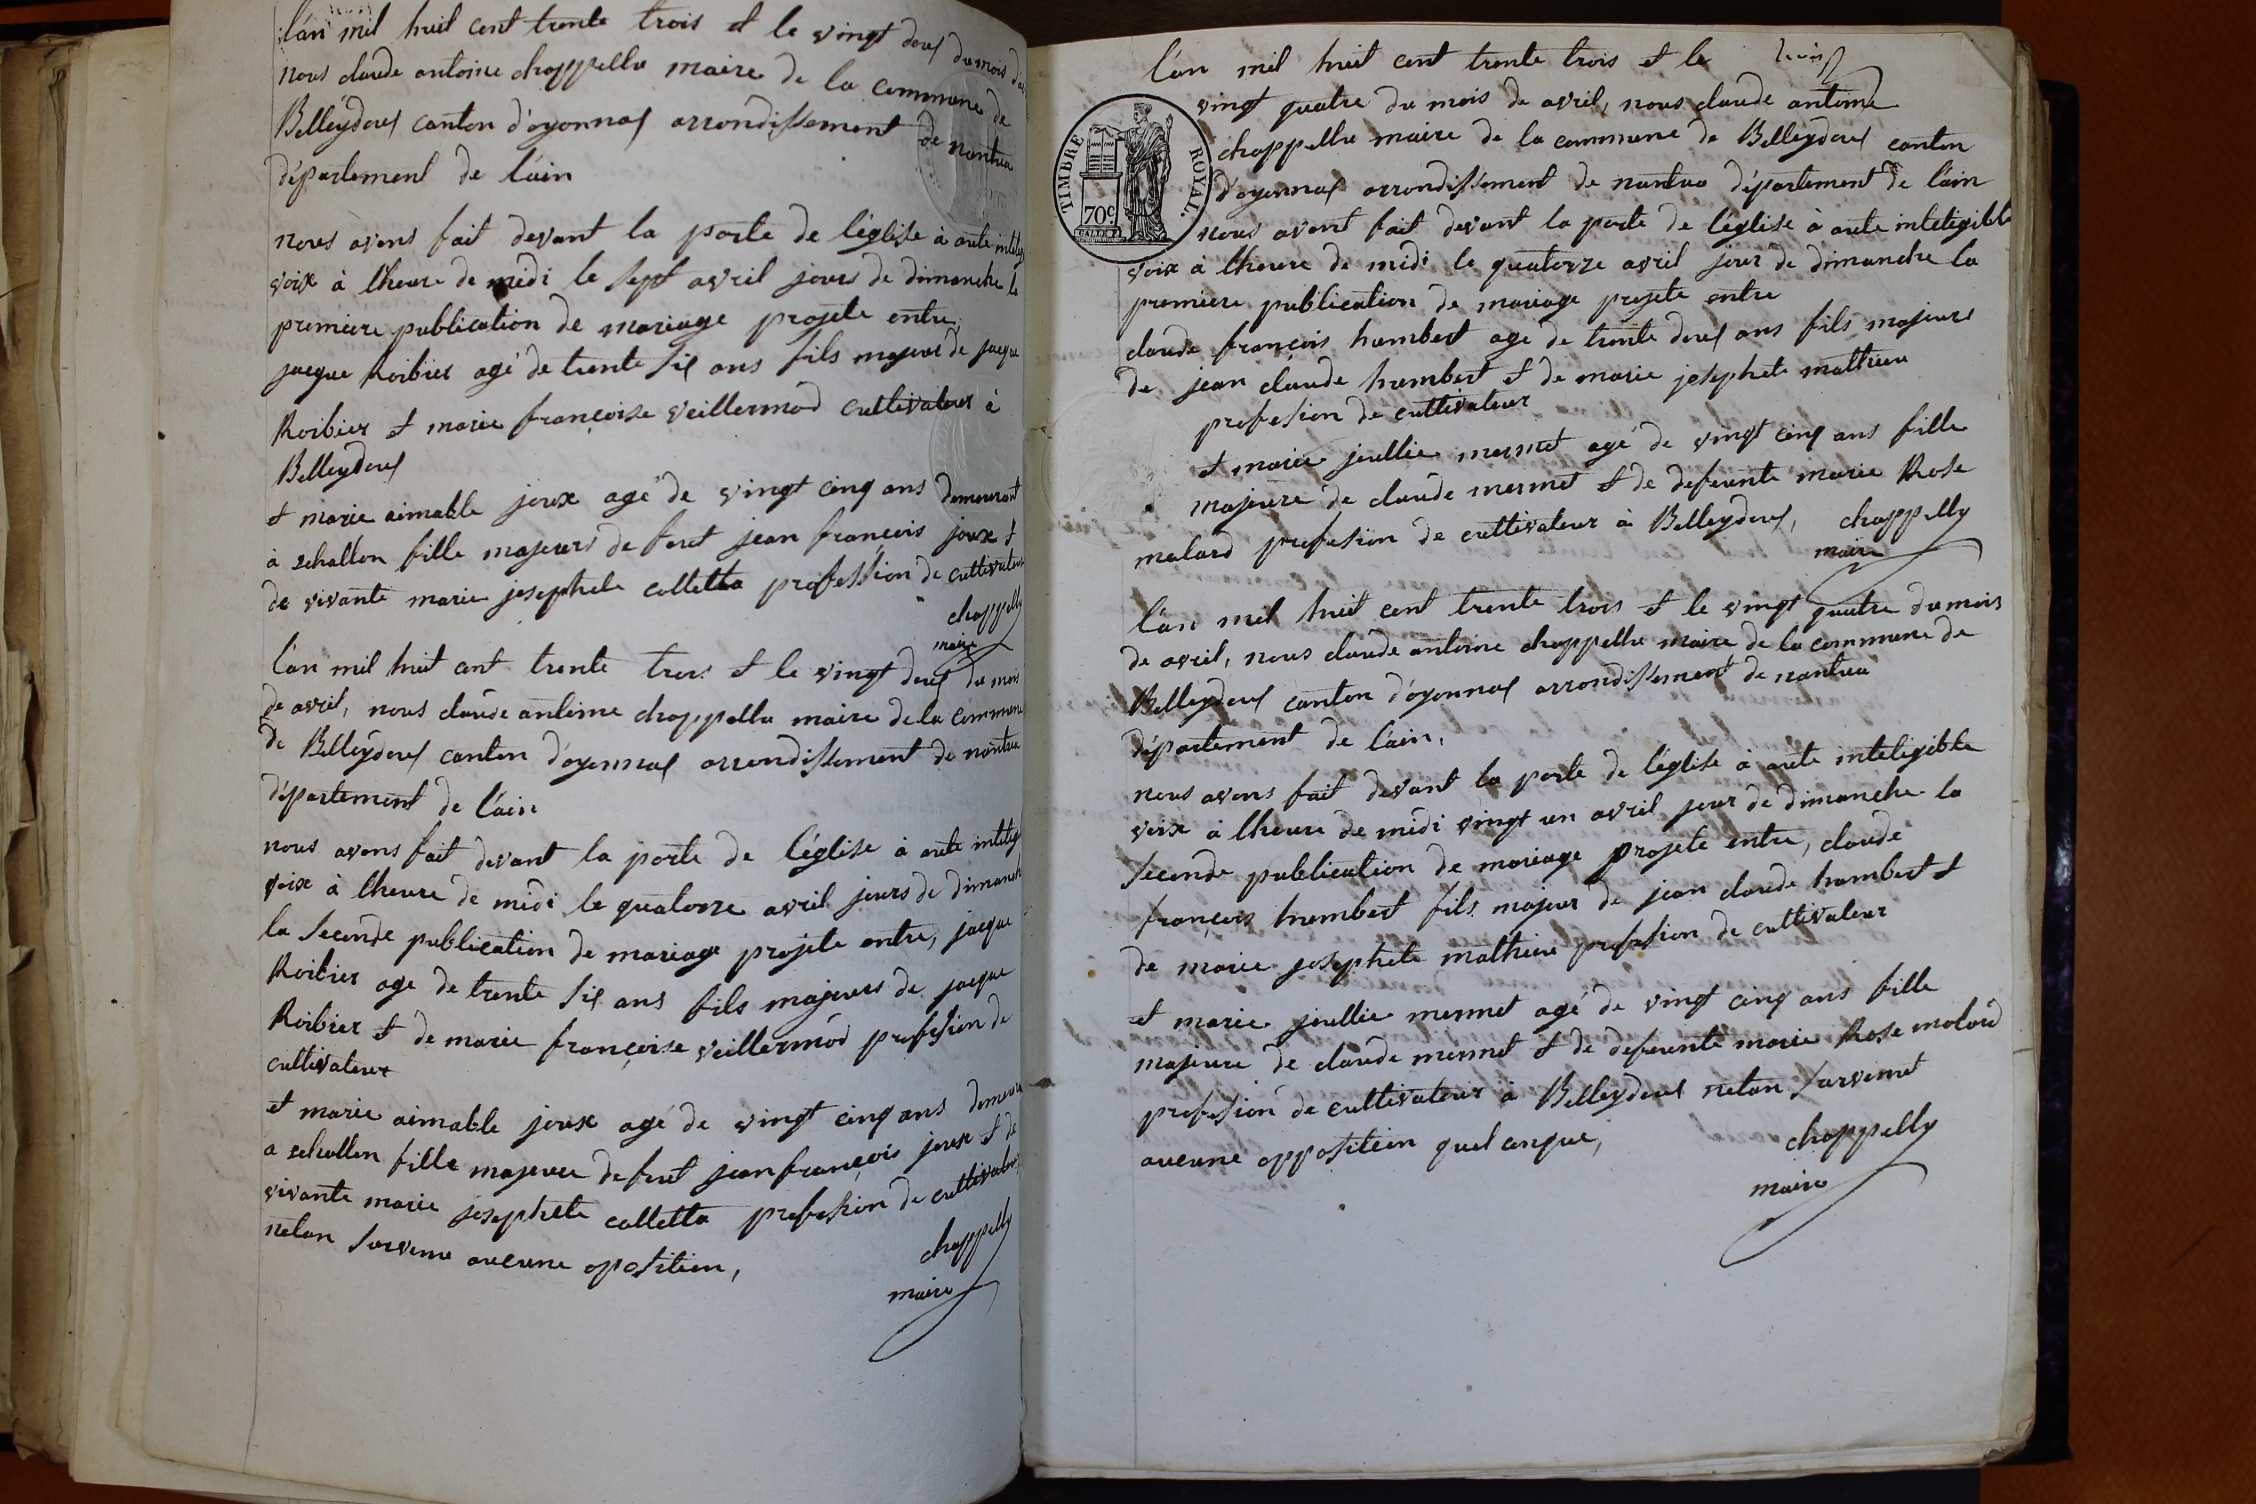 l'an mil huit cent trente trois et le vingt deux du mois
nous claude antoine chappellu maire de la commune de
Belleydoux canton d'oyonnax arrondissement de nantua
département de l'ain
nous avons fait devant la porte de l'églile à aute intelig
voix à lheure de midi le sept avril jours de dimanche la
premiere publication de mariage projete entre,
jacque Roibier agé de trente six ans fils majeur de jacque
Roibier et marie françoise veillermod cultivateur à
Belleydoux
et marie aimable joux agé de vingt cinq ans demeurant
à echallon fille majeurs de feut jean françois joux et
de vivante marie josephete colletta profession de cultivateur
chappelly
maire
l'an mil huit cent trente trois et le vingt deux du mois
de avril, nous claude antoine chappellu maire de la commune
de Belleydoux canton d'oyonnax arrondissement de nantua
département de l'ain
nous avons fait devant la porte de l'églile à aute intelig
voix à lheure de midi le quatorze avril jours de dimanch
la seconde publication de mariage projete entre, jacque
Roibier age de trente six ans fils majeurs de jacque
Roibier et de marie françoise veillermod profession de
cultivateur
et marie aimable joux agé de vingt cinq ans demeura
a echallon fille majeure de feut jean françois joux et de
vivante marie josephete colletta profession de cultivateur
netan survenu aucune oposition,
chappelly
maire
l'an mil huit cent trente trois et le
vingt quatre du mois de avril, nous claude antoine
chappellu maire de la commune de Belleydoux canton
d'oyonnax arrondissement de nantua département de l'ain
TIMBRE ROYAL.
70c
nous avont fait devant la porte de l'églile à aute inteligible
voix à lheure de midi le quatorze avril jour de dimanche la
premiere publication de mariage projete entre
claude françois humbert age de trente deux ans fils majeurs
de jean claude humbert et de marie josephete mathieu
profesion de cultivateur
et marie jeullie mermet agé de vingt cinq ans fille
majeure de claude mermet et de defeunte marie Rose
molard profesion de cultivateur à Belleydoux, chappelly
maire
l'an mil huit cent trente trois et le vingt quatre du mois
de avril, nous claude antoine chappellu maire de la commune de
Belleydoux canton d'oyonnax arrondissement de nantua
département de l'ain,
nous avons fait devant la porte de l'églile à aute inteligible
voix à lheure de midi vingt un avril jour de dimanche la
seconde publication de mariage projete entre, claude
françois humbert fils majeur de jean claude humbert et
de marie josephete mathieu profesion de cultivateur
et marie jeullie mermet agé de vingt cinq ans fille
majeure de claude mermet et de defeunte marie Rose molard
profesion de cultivateur à Belleydoux netan survenut
aucune opposition quel conque,
chappelly
maire